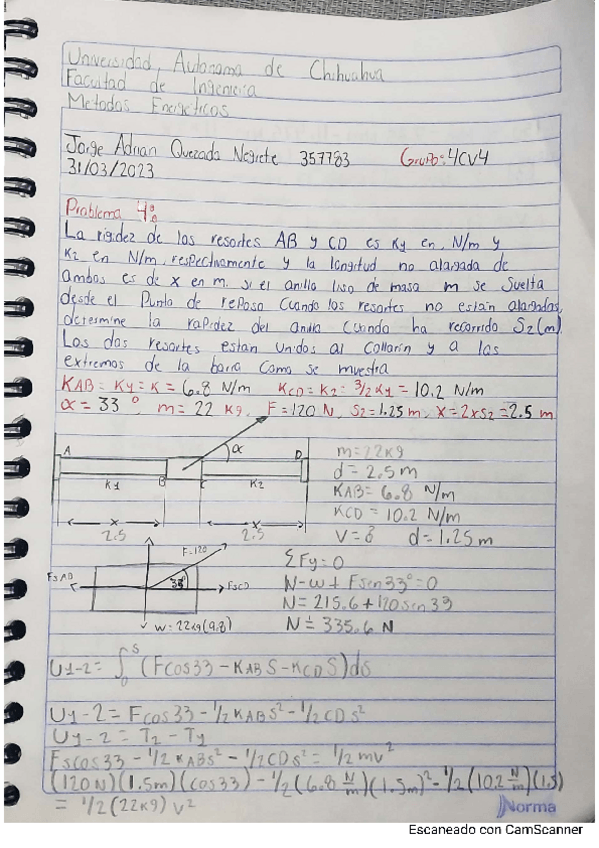 Universidad Autonoma de Chihuahua
Facultad de Ingenieria
Metodos Energeticos
Jorge Adrian Quezada Negrete 357783 Grupo: 4CV4
31/03/2023
Problema 4:
La rigidez de los resortes AB y CD es Ky en N/m y
K2 en N/m, respectivamente y la longitud no alargada de
ambos es de x en m. si el anillo liso de masa m se suelta
desde el Punto de reposo cuando los resortes no estan alargados,
determine la rapidez del anillo cuando ha recorrido S2(m).
Los dos resortes estan unidos al collarin y a los
extremos de la barra como se muestra
KAB = Ky = K = 6.8 N/m KCD = K2 = 3/2 Ky = 10.2 N/m
α = 33°, m = 22 Kg, F = 120 N, S2 = 1.25 m, x = 2xS2 = 2.5 m
A α D
K1 B C K2
x x
2.5 2.5
m = 22 Kg
d = 2.5 m
KAB = 6.8 N/m
KCD = 10.2 N/m
V = ? d = 1.25 m
F=120
FSAB 33° FSCD
W = 22Kg(9.8)
ΣFy = 0
N - w + Fsen33° = 0
N = 215.6 + 120 sen 33
N = 335.6 N
U1-2 = ∫₀ˢ (Fcos33 - KAB S - KCD S) ds
U1-2 = Fcos33 - 1/2 KABS² - 1/2 CD S²
U1-2 = T2 - T1
Fscos33 - 1/2 KABS² - 1/2 CDS² = 1/2 mv²
(120N)(1.5m)(cos33) - 1/2 (6.8 N/m)(1.5m)² - 1/2 (10.2 N/m)(1.5)
= 1/2 (22Kg) V²
Norma
Escaneado con CamScanner